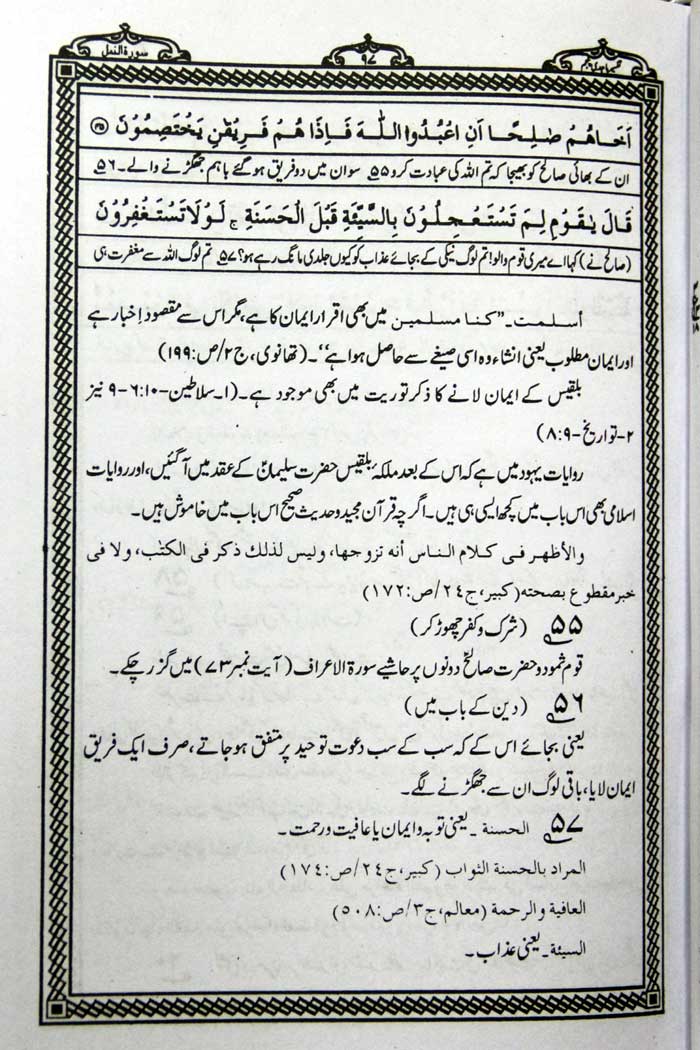 سورۃ النمل
۹۷
اَخَاهُمْ صٰلِحًا اَنِ اعْبُدُوا اللّٰهَ فَاِذَا هُمْ فَرِيْقٰنِ يَخْتَصِمُوْنَ ﴿۴۵﴾
ان کے بھائی صالح کو بھیجا کہ تم اللہ کی عبادت کرو ۵۵ سوان میں دو فریق ہو گئے باہم جھگڑنے والے۔ ۵۶
قَالَ يٰقَوْمِ لِمَ تَسْتَعْجِلُوْنَ بِالسَّيِّئَةِ قَبْلَ الْحَسَنَةِ ۚ لَوْلَا تَسْتَغْفِرُوْنَ
(صالح نے) کہا اے میری قوم والو! تم لوگ نیکی کے بجائے عذاب کو کیوں جلدی مانگ رہے ہو؟ ۵۷ تم لوگ اللہ سے مغفرت ہی
أسلمت۔ ”كنا مسلمين میں بھی اقرار ایمان کا ہے، مگر اس سے مقصود إخبار ہے
اور ایمان مطلوب یعنی انشاء وہ اسی صیغے سے حاصل ہوا ہے“۔ (تھانوی، ج۲/ص:۱۹۹)
بلقیس کے ایمان لانے کا ذکر توریت میں بھی موجود ہے۔ (۱۔سلاطین-۱۰:۶-۹ نیز
۲-تواریخ-۹:۸)
روایات یہود میں ہے کہ اس کے بعد ملکہٴ بلقیس حضرت سلیمانؑ کے عقد میں آ گئیں، اور روایات
اسلامی بھی اس باب میں کچھ ایسی ہی ہیں۔ اگرچہ قرآن مجید و حدیث صحیح اس باب میں خاموش ہیں۔
والأظهر فى كلام الناس أنه تزوجها، وليس لذلك ذكر فى الكتٰب، ولا فى
خبر مقطوع بصحته (كبير، ج۲۴/ص:۱۷۲)
۵۵ (شرک و کفر چھوڑ کر)
قوم ثمود و حضرت صالحؑ دونوں پر حاشیے سورۃ الاعراف (آیت نمبر ۷۳) میں گزر چکے۔
۵۶ (دین کے باب میں)
یعنی بجائے اس کے کہ سب کے سب دعوت توحید پر متفق ہو جاتے، صرف ایک فریق
ایمان لایا، باقی لوگ ان سے جھگڑنے لگے۔
۵۷ الحسنة۔ یعنی توبہ و ایمان یا عافیت و رحمت۔
المراد بالحسنة الثواب (كبير، ج۲۴/ص:۱۷۴)
العافية والرحمة (معالم، ج۳/ص:۵۰۸)
السيئة۔ یعنی عذاب۔